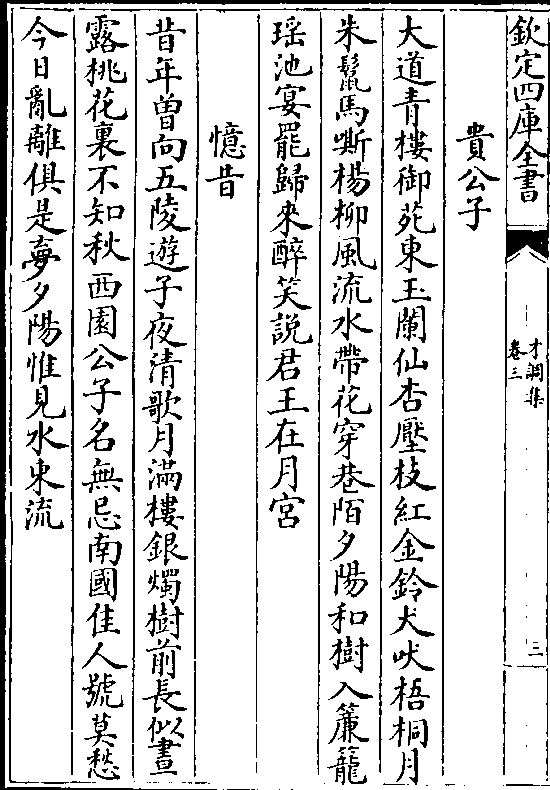 欽定四庫全書
才調集
卷三
三
貴公子
大道青樓御苑東玉闌仙杏壓枝紅金鈴犬吠梧桐月
朱鬛馬嘶楊柳風流水帶花穿巷陌夕陽和樹入簾籠
瑶池宴罷歸來醉笑説君王在月宮
憶昔
昔年曽向五陵遊子夜清歌月滿樓銀燭樹前長似晝
露桃花裏不知秋西園公子名無忌南國佳人號莫愁
今日亂離俱是夢夕陽惟見水東流